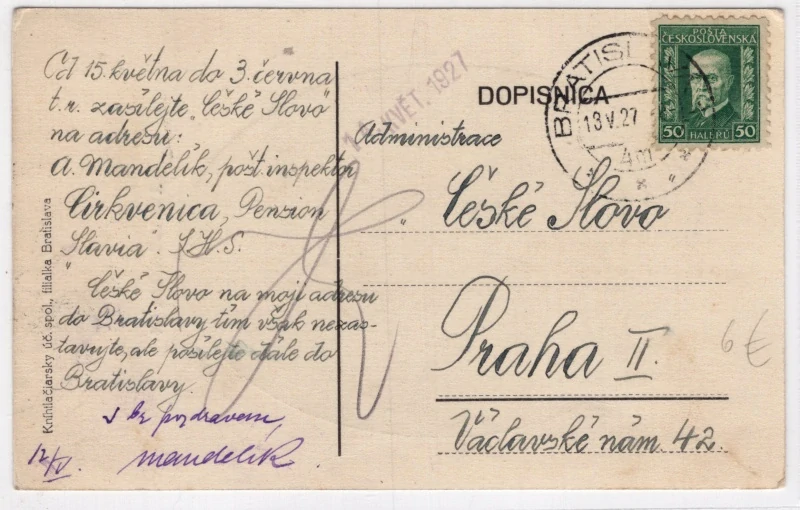 Od 15. května do 3. června
t.r. zasílejte „České Slovo"
na adresu:
A. Mandelík, pošt. inspektor
Cirkvenica, Pension
„Slavia". S.H.S.
„České Slovo na moji adresu
do Bratislavy tím však nezas-
tavujte, ale posílejte dále do
Bratislavy.
pozdravem,
12/V. Mandelík.
Knihtlačiarsky úč. spol., filialka Bratislava
KVĚT. 1927
DOPISNICA
POŠTA
ČESKOSLOVENSKÁ
50 HALÉŘŮ 50
BRATISL
13.V.27
Administrace
„České Slovo
Praha II.
Václavské nám. 42.
6 €